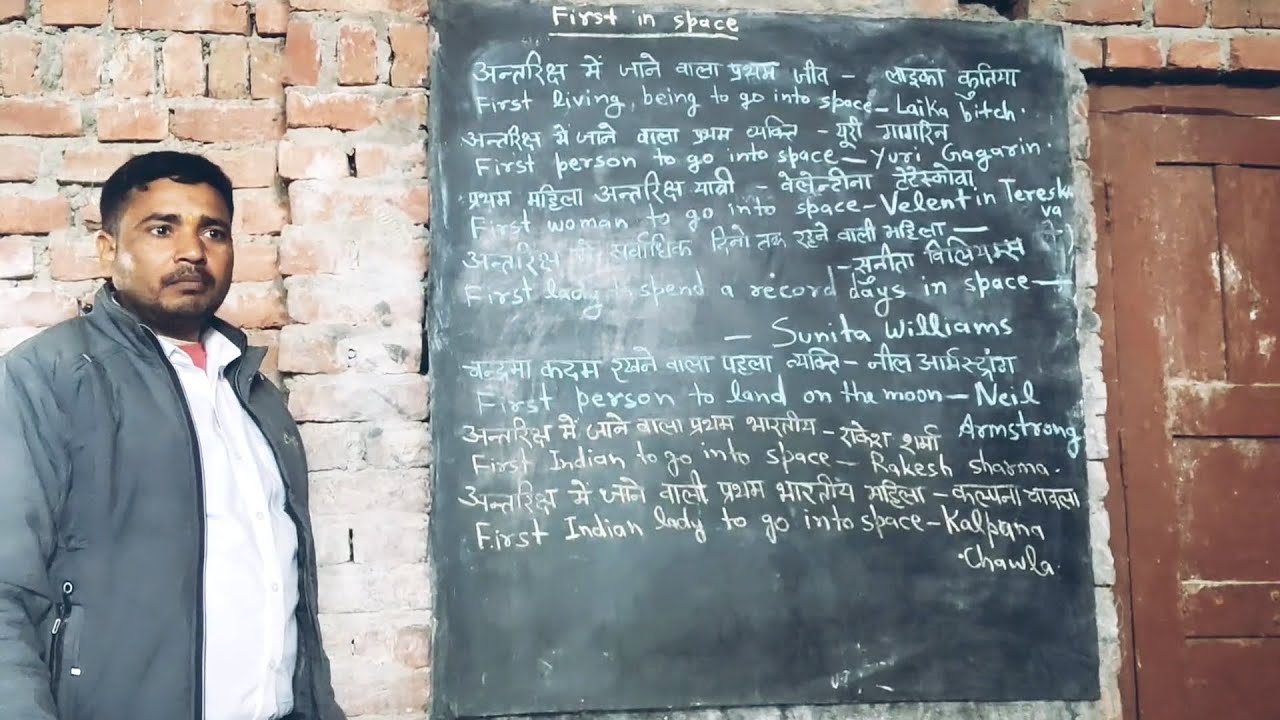 First in space
अन्तरिक्ष में जाने वाला प्रथम जीव - लाइका कुतिया
First living, being to go into space - Laika bitch.
अन्तरिक्ष में जाने वाला प्रथम व्यक्ति - यूरी गागरिन
First person to go into space - Yuri Gagarin.
प्रथम महिला अन्तरिक्ष यात्री - वेलेन्टीना टेरेस्कोवा
First woman to go into space - Velentin Teresko
va
अन्तरिक्ष में सर्वाधिक दिनो तक रहने वाली महिला -
- सुनीता विलियम्स
First lady to spend a record days in space -
- Sunita Williams
चन्द्रमा कदम रखने वाला पहला व्यक्ति - नील आर्मस्ट्रांग
First person to land on the moon - Neil
Armstrong
अन्तरिक्ष में जाने वाला प्रथम भारतीय - राकेश शर्मा
First Indian to go into space - Rakesh sharma.
अन्तरिक्ष में जाने वाली प्रथम भारतीय महिला - कल्पना चावला
First Indian lady to go into space - Kalpana
Chawla